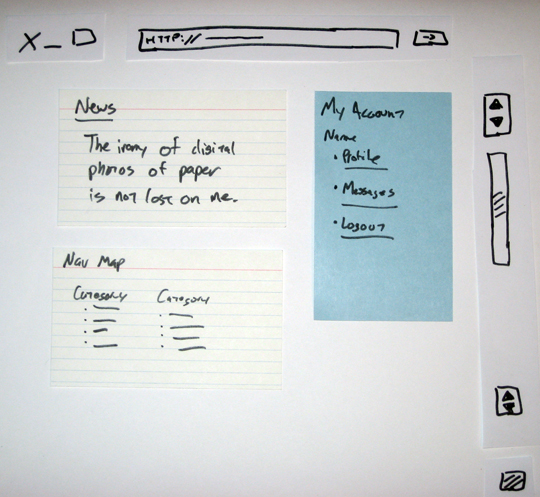 X _ D
HTTP://
News
The irony of digital
photos of paper
is not lost on me.
My Account
Name
• Profile
• Messages
• Logout
Nav Map
Category Category